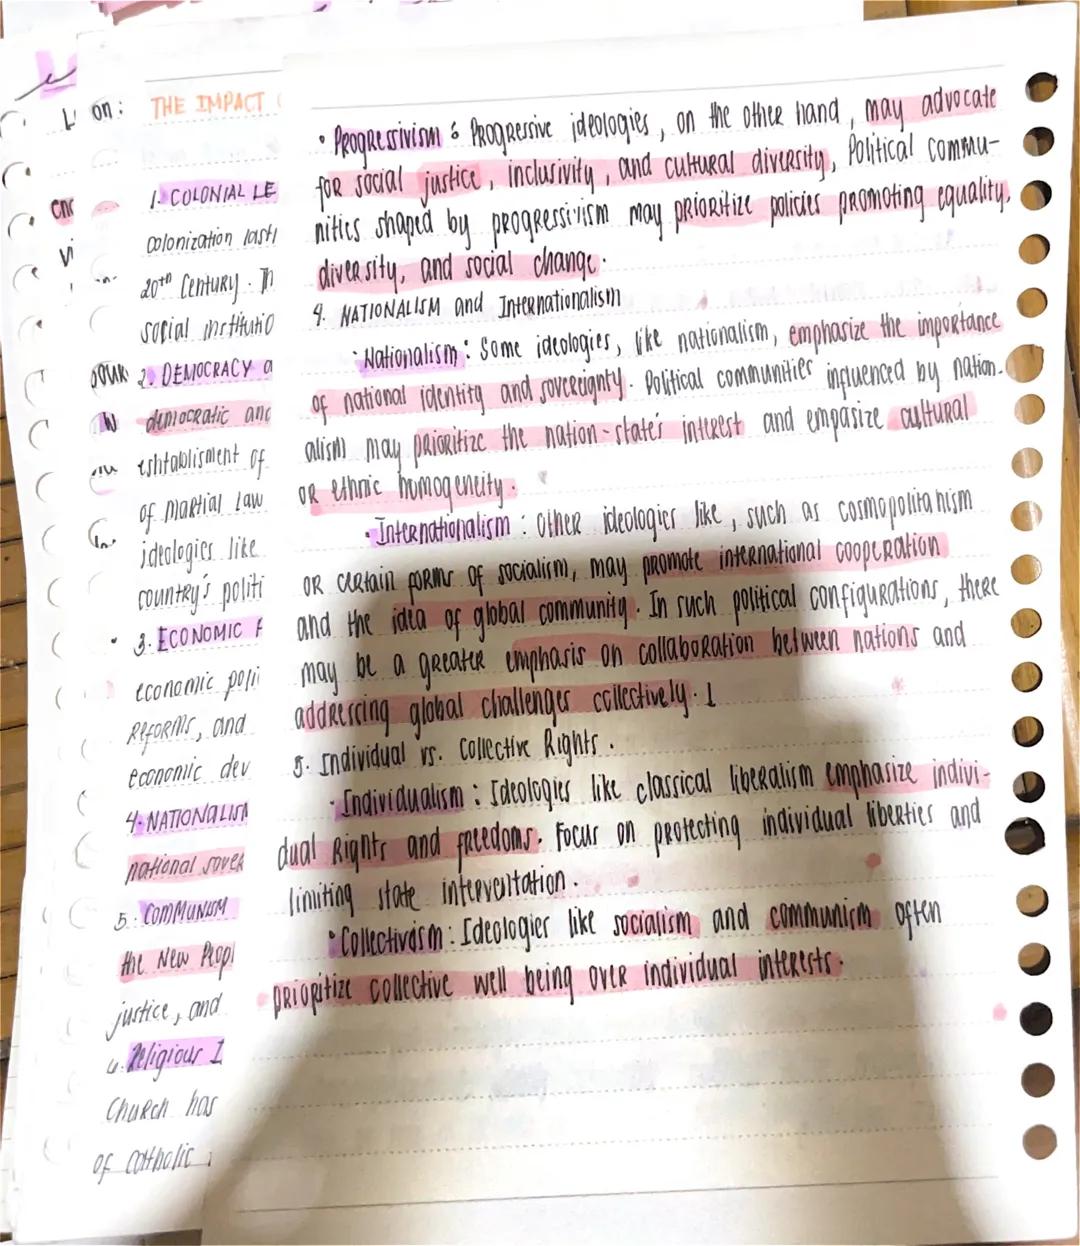 • Progressivism : Progressive ideologies, on the other hand, may advocate
for social justice, inclusivity, and cultural diversity, Political commu-
nities shaped by progressivism may prioritize policies promoting equality,
diversity, and social change.
4. NATIONALISM and Internationalism
• Nationalism : Some ideologies, like nationalism, emphasize the importance
of national identity and sovereignty. Political communities influenced by nation-
alism may prioritize the nation-state's interest and empasize cultural
or ethnic homogeneity.
• Internationalism : Other ideologies like, such as cosmopolitanism
or certain forms of socialism, may promote international cooperation
and the idea of global community. In such political configurations, there
may be a greater emphasis on collaboration between nations and
addressing global challenges collectively. 1
5. Individual vs. Collective Rights.
• Individualism : Ideologies like classical liberalism emphasize indivi-
dual Rights and freedoms. Focus on protecting individual liberties and
limiting state interventation.
• Collectivism : Ideologies like socialism and communism often
prioritize collective well being over individual interests.
on: THE IMPACT
1. COLONIAL LE
colonization lasti
20th Century. Th
social institutio
2. DEMOCRACY a
democratic and
eshtablisment of
of martial law
ideologies like
country's politi
3. ECONOMIC F
economic poli
Reforms, and
economic dev
4. NATIONALISM
national sover
5. COMMUNISM
the New Peopl
justice, and
6. Religious I
Church has
of catholic